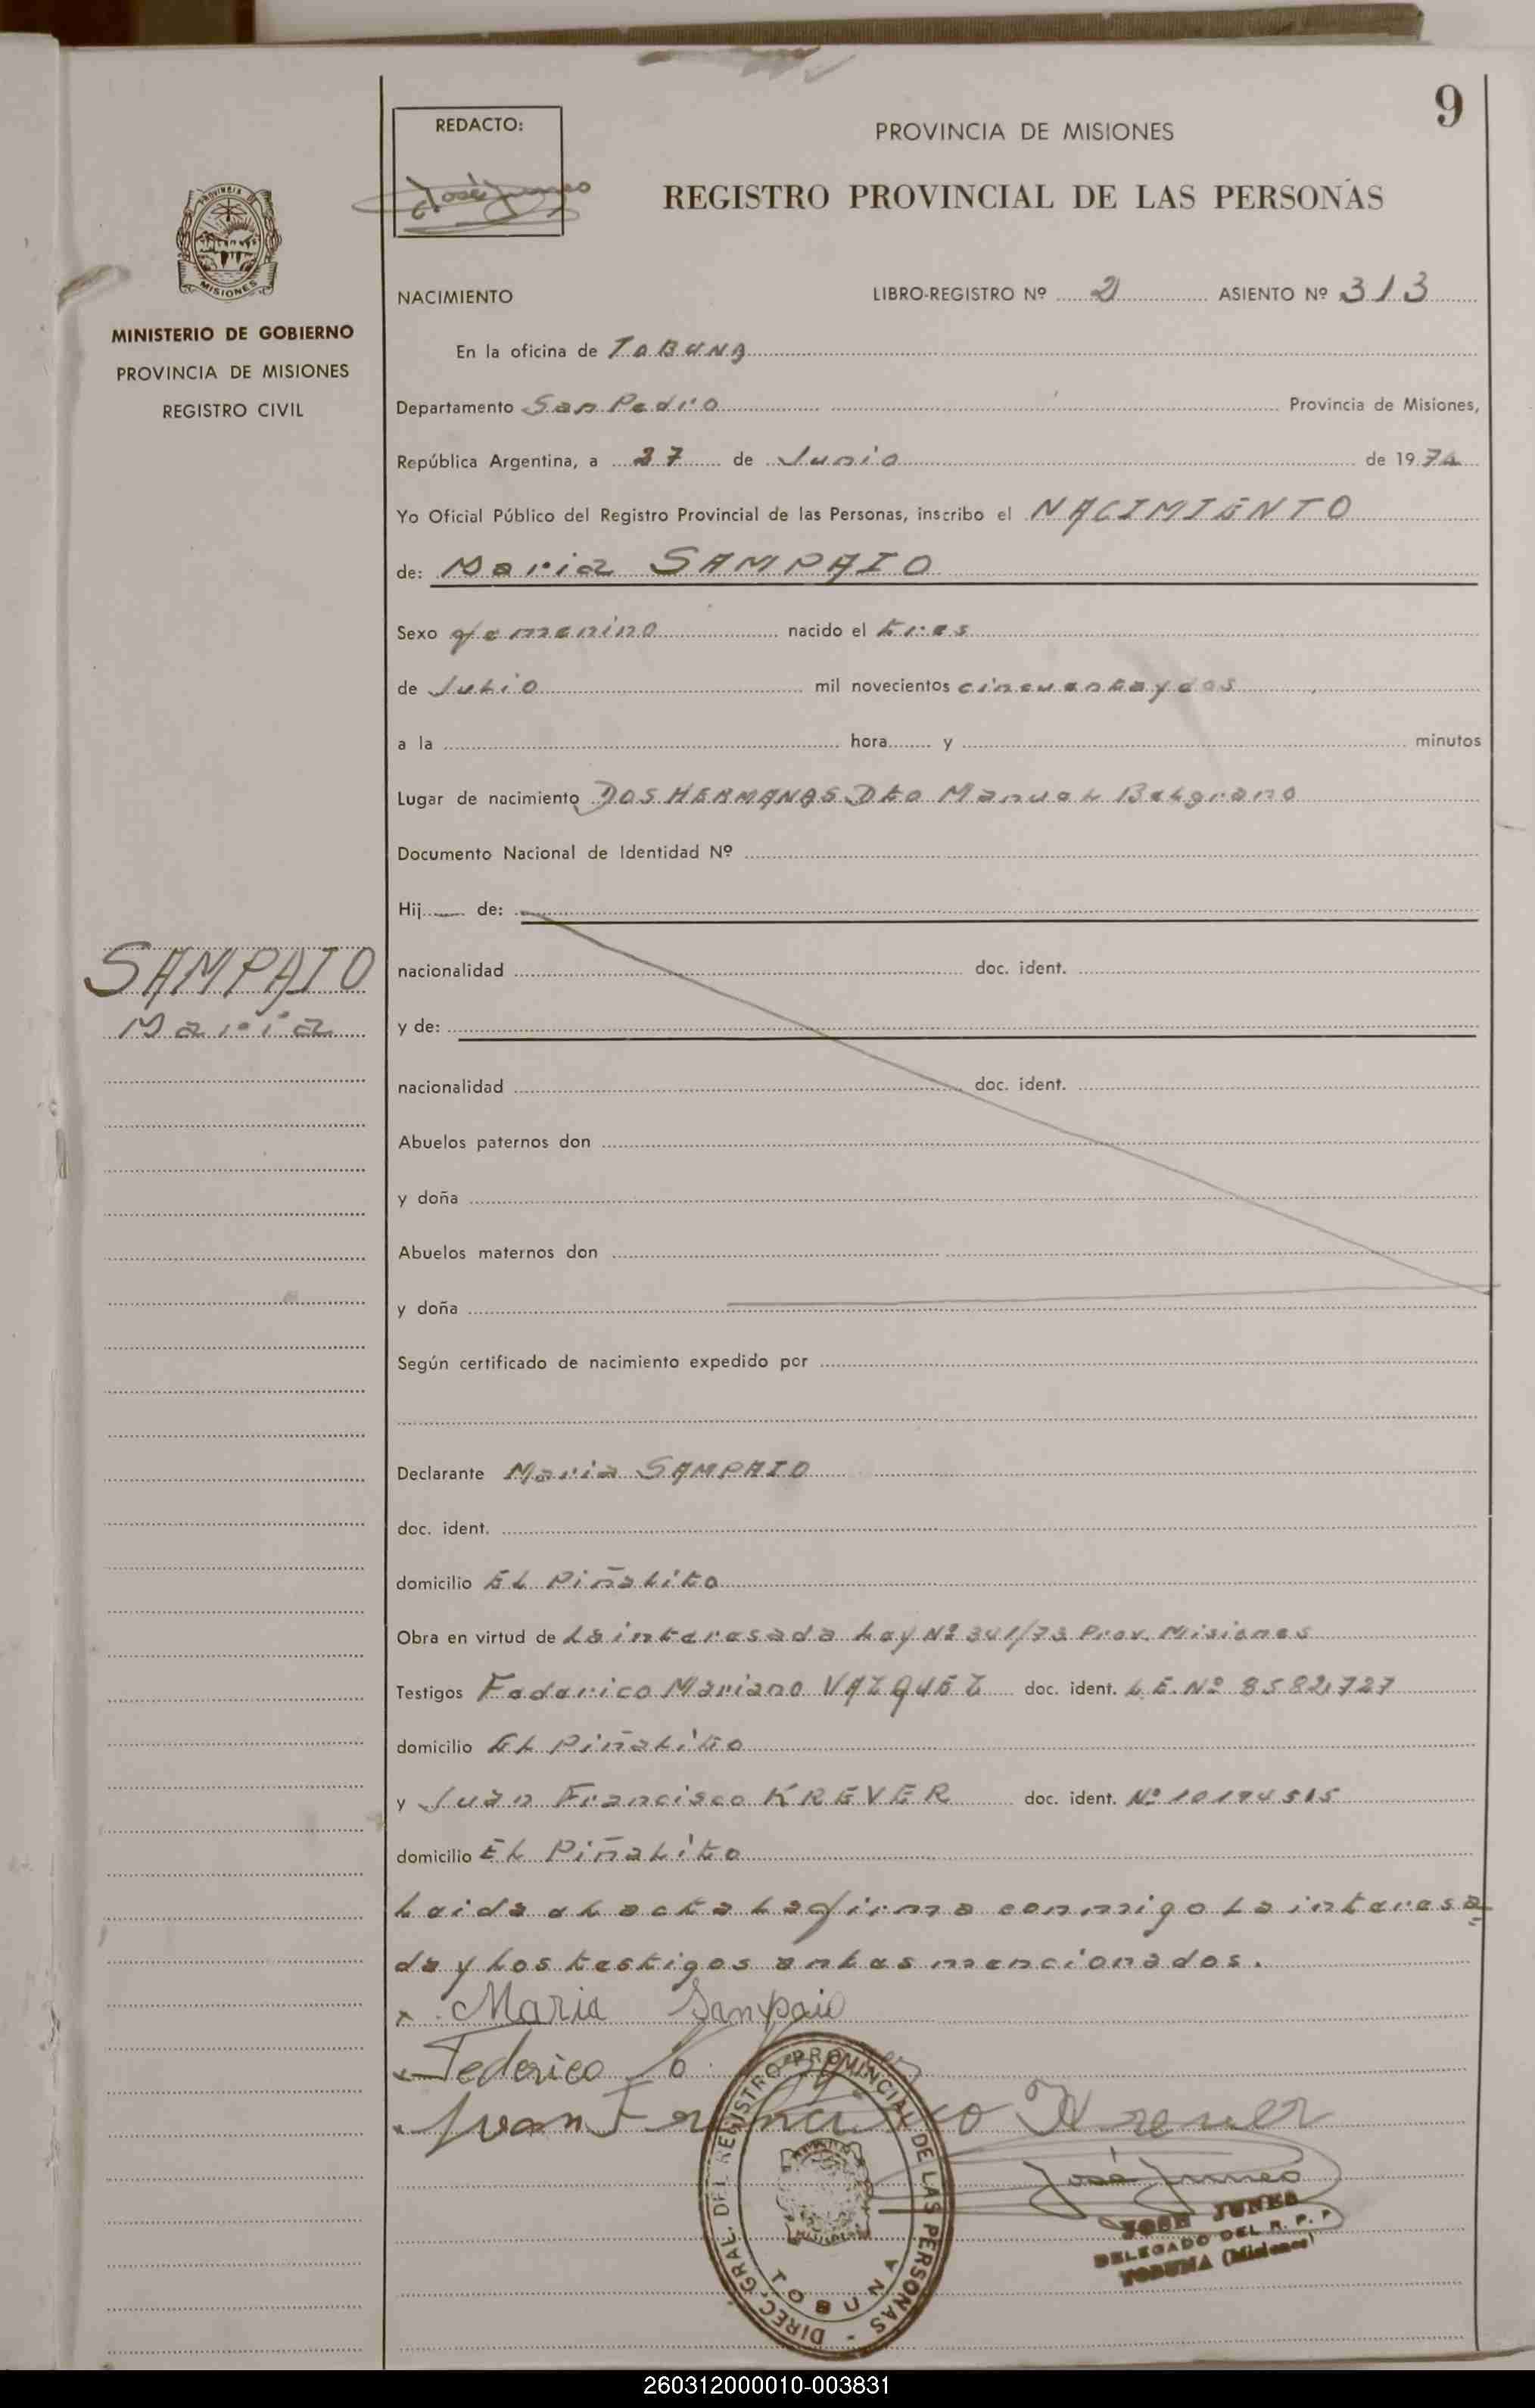 9
REDACTO:
PROVINCIA DE MISIONES
REGISTRO PROVINCIAL DE LAS PERSONAS
PROVINCIA
MISIONES
MINISTERIO DE GOBIERNO
PROVINCIA DE MISIONES
REGISTRO CIVIL
NACIMIENTO LIBRO-REGISTRO Nº 2 ASIENTO Nº 313
En la oficina de TOBUNA
Departamento San Pedro Provincia de Misiones,
República Argentina, a 27 de Junio de 1974
Yo Oficial Público del Registro Provincial de las Personas, inscribo el NACIMIENTO
de: Maria SAMPAIO
Sexo femenino nacido el tres
de Julio mil novecientos cincuenta y dos
a la hora y minutos
Lugar de nacimiento DOS HERMANAS Dto Manuel Belgrano
Documento Nacional de Identidad Nº
Hij de:
SAMPAIO
Maria
nacionalidad doc. ident.
y de:
nacionalidad doc. ident.
Abuelos paternos don
y doña
Abuelos maternos don
y doña
Según certificado de nacimiento expedido por
Declarante Maria SAMPAIO
doc. ident.
domicilio El Piñalito
Obra en virtud de la interesada Ley Nº 341/73 Prov. Misiones
Testigos Federico Mariano VAZQUEZ doc. ident. L.E. Nº 8582727
domicilio El Piñalito
y Juan Francisco KREVER doc. ident. Nº 10194515
domicilio El Piñalito
Leida el acta la firma conmigo la interesa
da y los testigos antes mencionados.
x Maria Sampaio
x Federico
x Juan Francisco Krever
José Juneo
DIREC. GRAL. DEL REGISTRO PROVINCIAL DE LAS PERSONAS
TOBUNA
JOSE JUNEO
DELEGADO DEL R. P. P
TOBUNA (Misiones)
260312000010-003831